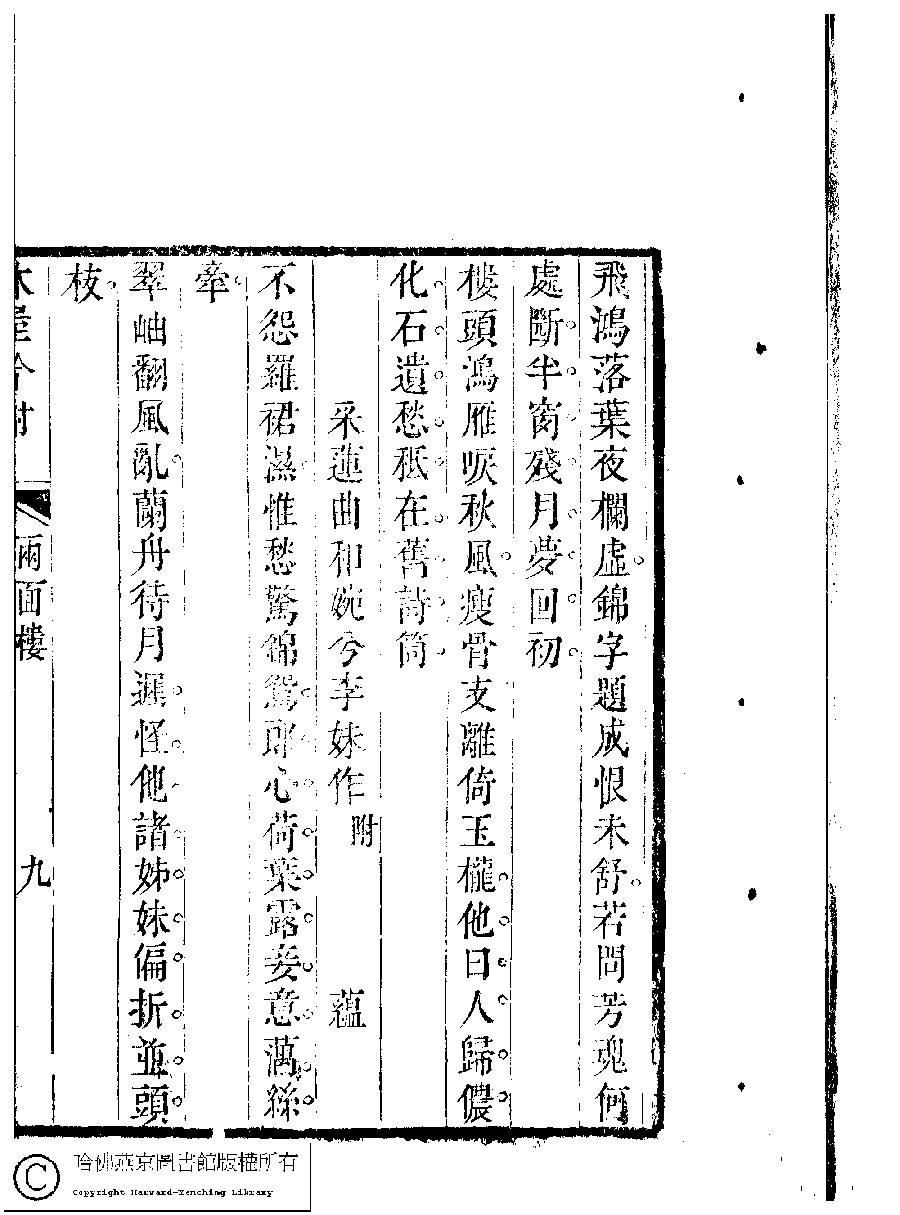 飛鴻落葉夜欄虛錦字題成恨未舒若問芳魂何
處斷半窗殘月夢回初
樓頭鴻雁唳秋風瘦骨支離倚玉櫳他日人歸儂
化石遺愁秪在舊詩筒
采蓮曲和婉兮李妹作附 蘊
不怨羅裙濕惟愁驚錦鴛郎心荷葉露妾意藕絲
牽
翠岫翻風亂蘭舟待月遲怪他諸姊妹偏折並頭
枝
兩面樓
九
哈佛燕京圖書館版權所有
Copyright Harvard-Yenching Library